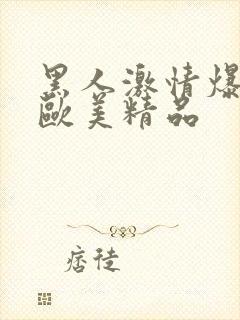 黑人激情爆
歐美精品
痞徒